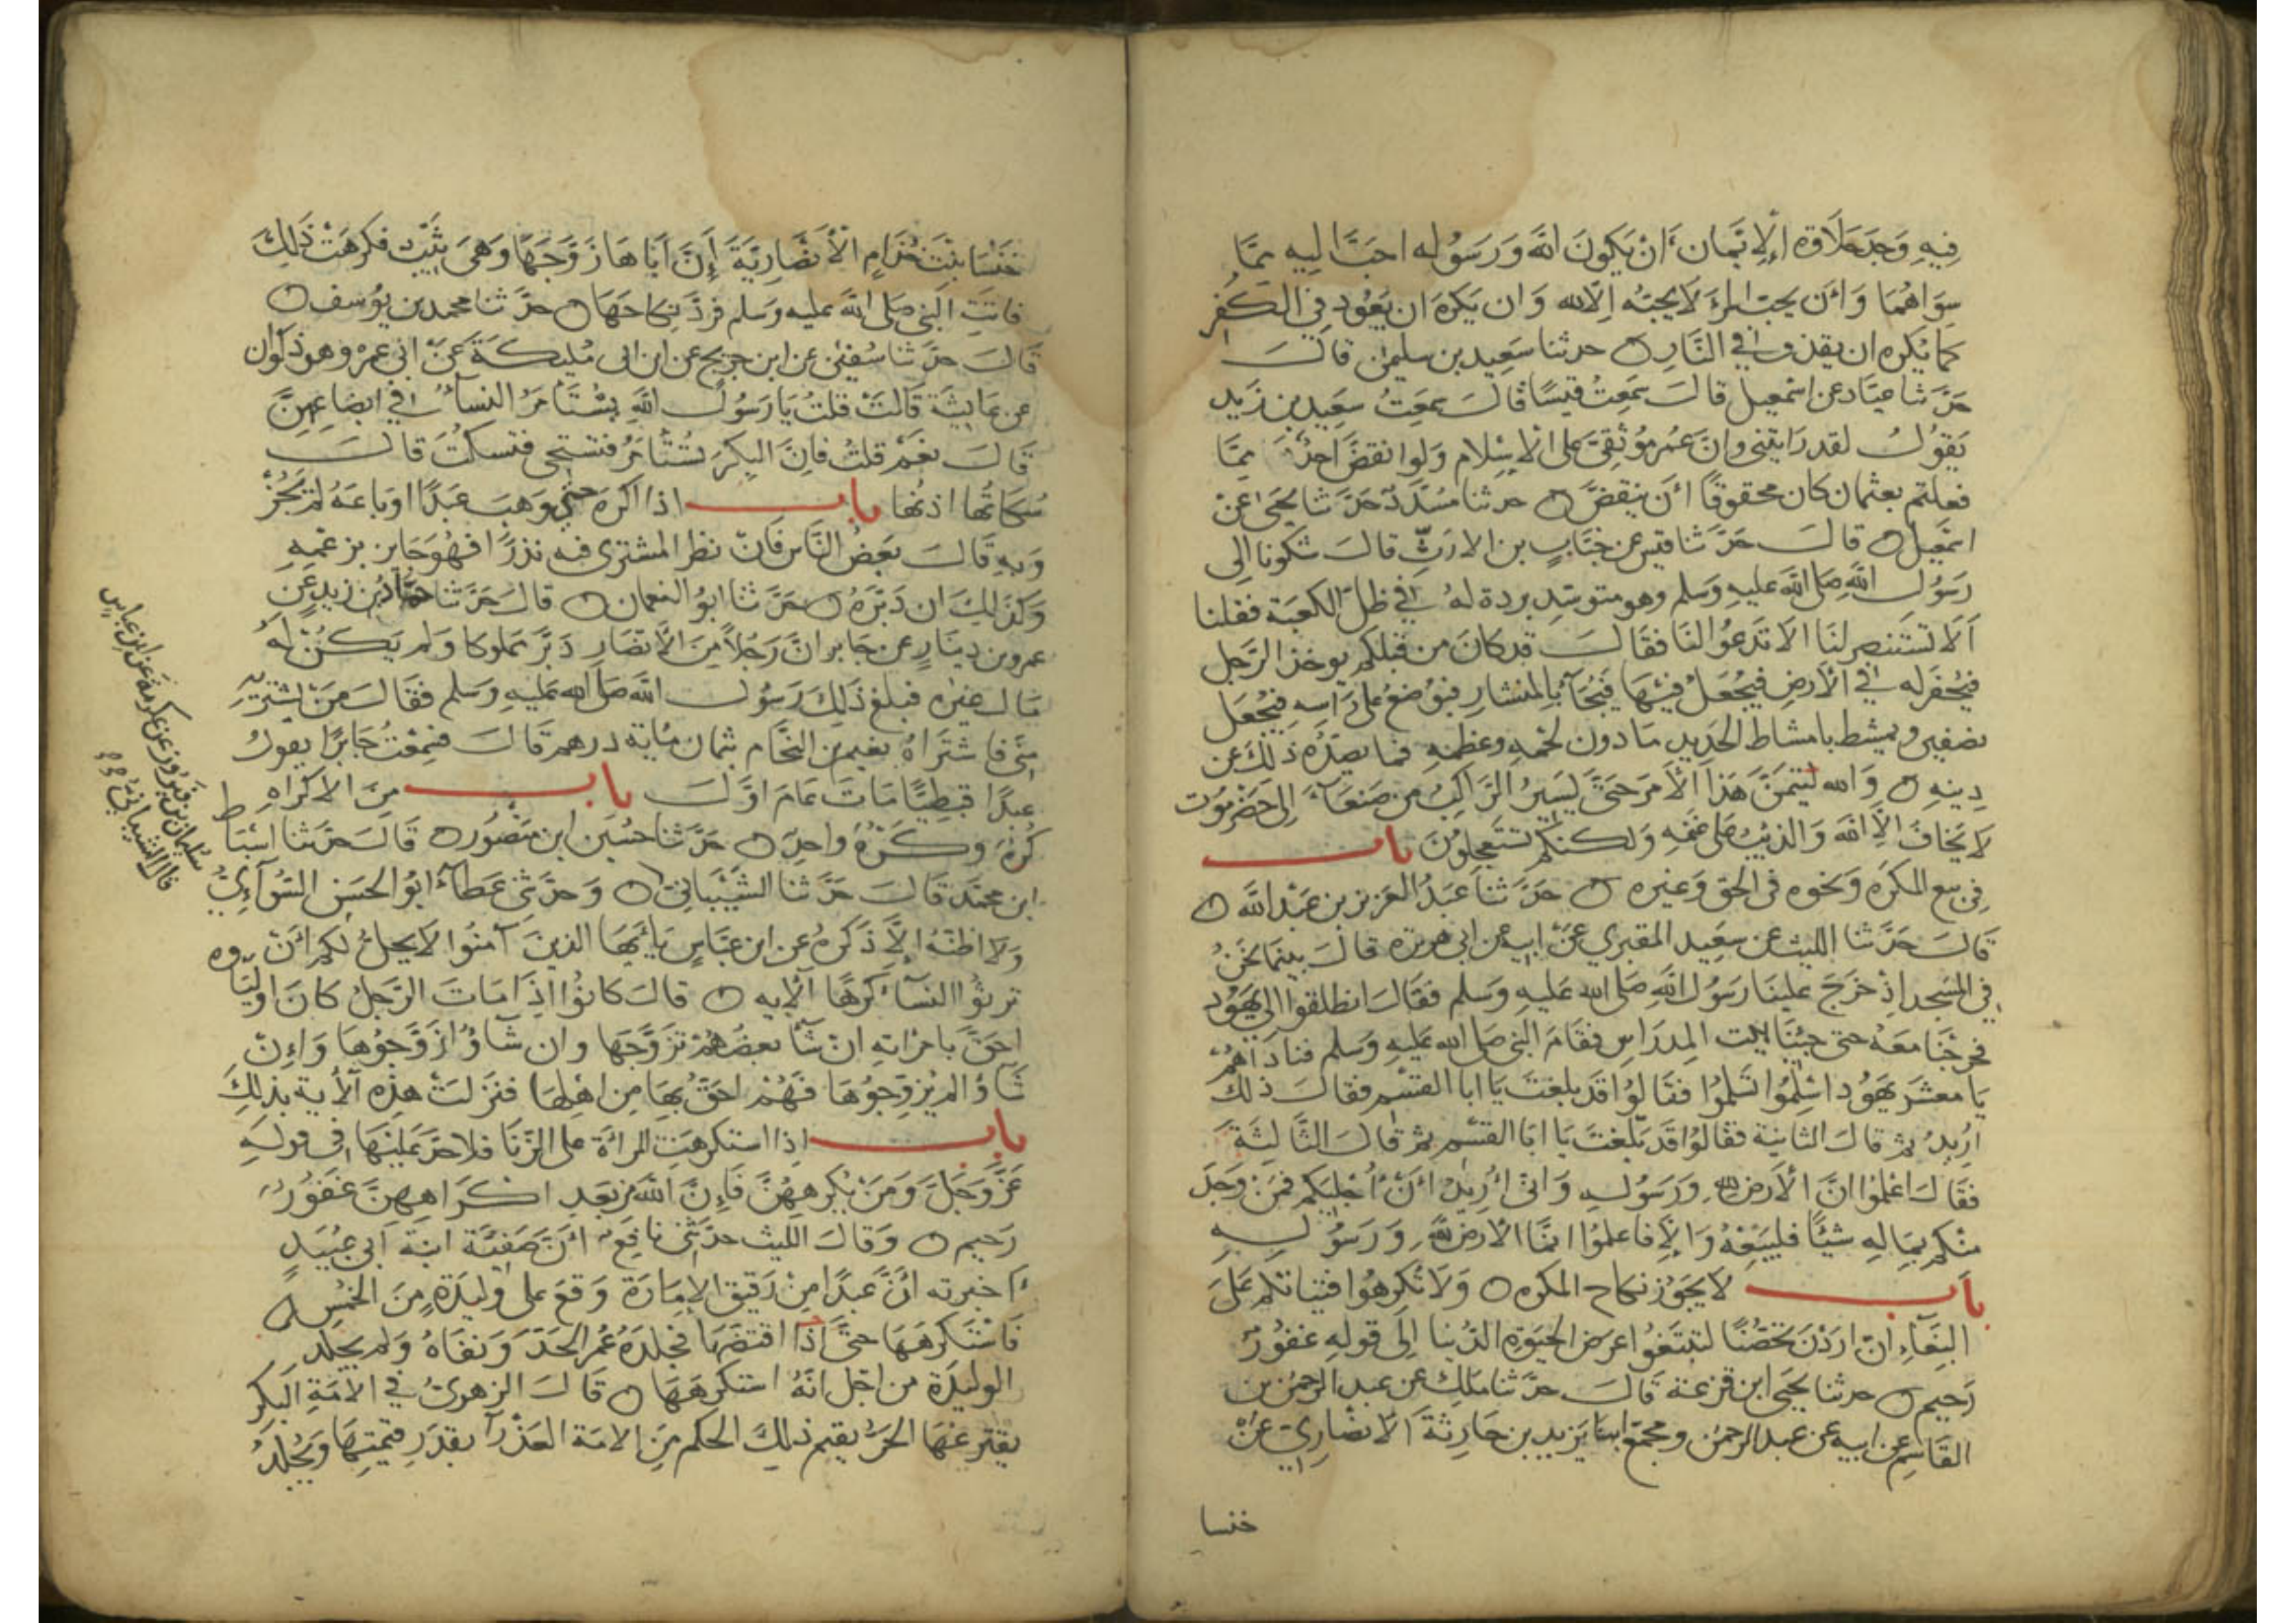 فِيهِ وَجَدَ حَلَاوَة الإِيمان أَنْ يَكونَ اللَّه وَرَسُوله احَبَّ اليهِ ممَّا
سِوَاهُمَا وَأن يحبّ المرءَ لَا يحبّه اِلّا لله وَان يَكرَهَ ان يَعُود في الكُفر
كما يَكره ان يقذف في النَّارِ ه حدثنا سَعِيد بن سليمن قالــَ
حدَّثنا عبَّاد عن اسْمعيل قالَ سَمِعتُ قيسًا قالَ سَمِعتُ سعِيد بن زَيد
يَقوُلُ لقد رَايتني وانَّ عُمر مُوثِقِيَّ على الاسْلام وَلوا نقضَّ احُد ممَّا
فعلتم بعثمان كان محقوقًا أن ينقضَّ ه حدثنا مسَدَّد حدَّثنا يحيَى عنْ
اسْمعِيل ه قالــَ حدَّثنا قيس عن خبَّاب بن الارتّ قالَ شكونا الِى
رَسُول اللَّهِ صَلى اللَّه عليهِ وَسَلم وهو متوسّد بردة لهُ في ظلّ الكعبَة فقلنا
اَلا تستنصر لنَا الا تدعُوا لنَا فقَالَ قد كانَ من قبلكم يوخذ الرَّجل
فيُحْفر له في الأرضِ فيُجعَلُ فيْهَا فيُجآء بالمنشارِ فيُوضعُ على رَاسِهِ فيُجْعَل
نصفين ويمشط بامشاط الحدَيد مَا دون لحمهِ وعظمهِ فما يصدّهُ ذلكَ عن
دِينِهِ ه وَالله ليتمَنَّ هَذا الأمرَ حتَّى يَسيرُ الرَّاكبُ من صَنعَآء الِى حَضْرمُوت
لَا يَخافَ الاَّ اللَّه وَالذيبَ على غنمِهِ وَلكنكم تستَعجِلونَ باب
في بيع المكرَه وَنحوه في الحق وَغيره ه حدَّثنا عَبدُ العَزيز بن عَبْد اللَّه ه
قالَ حدَّثنا الليث عن سعِيد المقبري عَنْ ابيه عن ابي هريرة قالَ بينمَا نحَنُ
في المسْجد اِذ خرَجَ علينَا رَسُول اللَّهِ صَلى الله عَليهِ وَسَلم فقَالَ انطلقوا الى يهُود
فخرجْنَا مَعَهُ حتى جئنَا بيْت المِدرَاسِ فقَامَ النبي صَلى الله عَليهِ وَسَلم فنادَاهُمْ
يَا مَعشرَ يهوُد اسْلِمُوا تَسْلمُوا فقَالوُا قد بلغتَ يَا ابا القسم فقالَ ذلك
ارُيدُ ثم قالَ الثانية فقَالوُا قد بَلّغتَ يَا ابَا القسم ثم قالَ الثَّالِثَة
فقَالَ اعْلموُا انَّ الأرضَ لله وَرَسُوله وَاني أُريدُ أنْ أُجْليَكم فمَنْ وَجَدَ
مِنْكم بمَالهِ شيئًا فليَبعْهُ وَالاَّ فاعلموُا انمَّا الأرضَ لله وَرَسُولــِهِ
باب لَا يَجوُز نكاح المكره ه وَلَا تُكرهوُا فتيَاتكم عَلَى
البِغَآء ان ارَدْنَ تحصّنًا لتبتغوُا عرَضَ الحيَوةِ الدّنيا الِى قولهِ غفوُر
رَحيم ه حدثنا يحيَى ابن قزعَة قَالَ حدَّثنا ملك عن عبد الرحمن بن
القاسِم عن ابيه عن عبد الرحمن ومجمّع ابنا يَزيد بن جَارِثَة الأنصَاري عنْ
خنسا
خَنْسَا بنْتَ خذام الأنصَارِيَّة إنَّ أبَاهَا زَوَّجَهَا وَهيَ ثيِّب فكرهَتْ ذَلكَ
فاتَتِ النبي صَلى اللَّه عليه وَسَلم فردَّ نِكاحَهَا ه حدَّثنا محمد بن يُوسف ه
قَالَ حدَّثنا سُفيٰن عن ابن جريج عن ابن ابى مُليكَة عَنْ ابي عمرو وهو ذكوان
عن عَايشَة قالَتْ قلتُ يَا رَسُول اللَّهِ يسْتَأمَرُ النسآءُ في ابضَاعِهِنَّ
قَالَ نعَم قلتُ فانَّ البكِرَ تُستَأمَرُ فتستحي فتسكتُ قالَ
سُكاتهُا اذنُهَا باب اذا اكرهَ حتى وَهبَ عَبدًا اوبَاعَهُ لم يَجُزْ
وَبهِ قَالَ بَعضُ النَّاس فَان نظر المشتري فيه نذرًا فهُوَ جَايز بزعْمِهِ
وَكذَلِكَ ان دَبّرَهُ ه حدَّثنا ابوُ النعمان ه قالَ حدَّثنا حمَّاد بن زيدٍ عن
عمرو بن دِينَار عن جَابر انَّ رَجُلاً مِنَ الأنصَار دَبَّر مملوكا وَلم يَكنْ لهُ
مَال غيره فبلغ ذَلكَ رَسُول اللَّه صَلى الله عليهِ وَسَلم فقَالَ مَنْ يشتريْهِ
منّي فاشتَراهُ نعيم بن النحَّام بثمان مائة درهم قالَ فسَمِعْتُ جَابرًا يقوُلُ
عبدًا قبطيًّا مَاتَ عَامَ اوَّلَ باب مِنَ الاكرَاهِ
كُرْه وكَرْه وَاحِد ه حدَّثنا حسُين ابن منْصُور ه قَالَ حدَّثنا اسْبَاط
ابن محمَّد قَالَ حدَّثنا الشَّيْبَاني ه وَحدَّثني عَطآء ابوُ الحسَن السُّوَآءيّ
وَلا اظنّهُ إلاَّ ذَكرهُ عن ابن عبَّاسٍ يَاأيّهَا الذينَ آمنُوا لَا يحلُّ لكم أنْ
ترثُوا النسآء كرهًا الآيه ه قالَ كانوُا اِذَا مَاتَ الرَّجلُ كانَ اوليَآوه
احَقَّ بامرَاتهِ ان شآ بعضُهُمْ تَزوَّجَهَا وان شَاؤا زَوَّجُوْهَا وَاِنْ
شَاؤا لم يُزوّجُوهَا فهُمْ احَقّ بهَا مِن اهْلِهَا فنزَلتْ هَذِه الآية بذلكَ
باب اِذا استكرهَتِ المراَة على الزّنَا فلا حدَّ عَليْهَا في قولهِ
عَزَّ وَجَلَّ وَمَنْ يُكرِههُنَّ فَاِنَّ اللَّهَ من بَعدِ اكْرَاهِهِنَّ غَفوُر
رَحيم ه وَقَالَ الليث حدّثني نافِع أنّ صَفيَّة ابنة ابَى عبُيَدٍ
اخبرته انَّ عَبدًا مِنْ رَقيق الإمَارَة وَقعَ على وليدَةٍ مِنَ الخمُسِ ه
فَاسْتكرهَهَا حتَّى اذَا اقتضّهَا فجَلدَهُ عُمر الحدَّ وَنفَاهُ وَلم يجلد
الوليدَة من اجْل انّهُ استكرهَهَا ه قَالَ الزهرىُ في الامَةِ البَكر
يفترعُهَا الحرُّ يقيم ذلِكَ الحكم مِنَ الامَة العَذْرآ بقدَرِ قيْمتِهَا وَيُجْلدُ
سليمان بن فَيرُوز عن عكرمَة عَن ابن عبَاسٍ
قال الشيباني